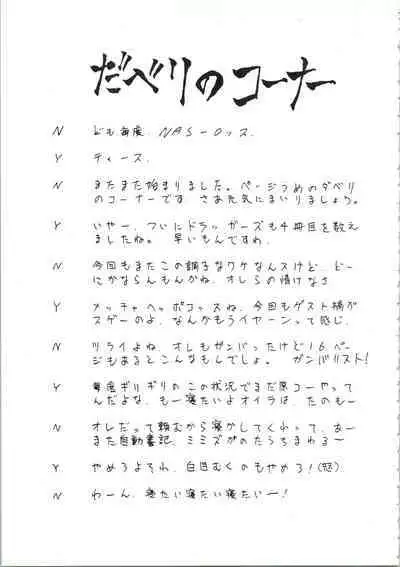 だべりのコーナー
N ども毎度、NAS-ロッス、
Y ディース、
N またまた始まりました。ページうめのダベリ
のコーナーです さあ元気にまいりましょう。
Y いやー、ついにドラッガーズも4冊目を数え
ましたね。 早いもんですわ、
N 今回もまたこの調子なワケなんスけど、どー
にかならんもんかね、オレらの情けなさ
Y メッチャヘッポコッスね、今回もゲスト稿が
スゲーのよ、なんかもうイヤーンって感じ、
N ツライよね、オレもガンバったけど16ペー
ジもあるとこんなもんでしょ。 ガンバリスト!
Y 毎度ギリギリの この状況でまだ原コーやって
んだよな、もー寝たいよオイラは、たのもー
N オレだって頼むから寝かしてくれって、あー
また自動書記、ミミズがのたうちまわる〜
Y やめろよそれ、白目むくのもやめろ!(怒)
N わーん、寝たい寝たい寝たいー!